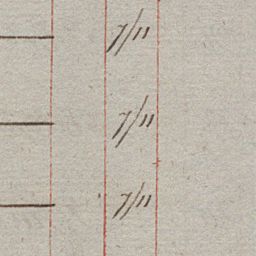 7/11
7/11
7/11